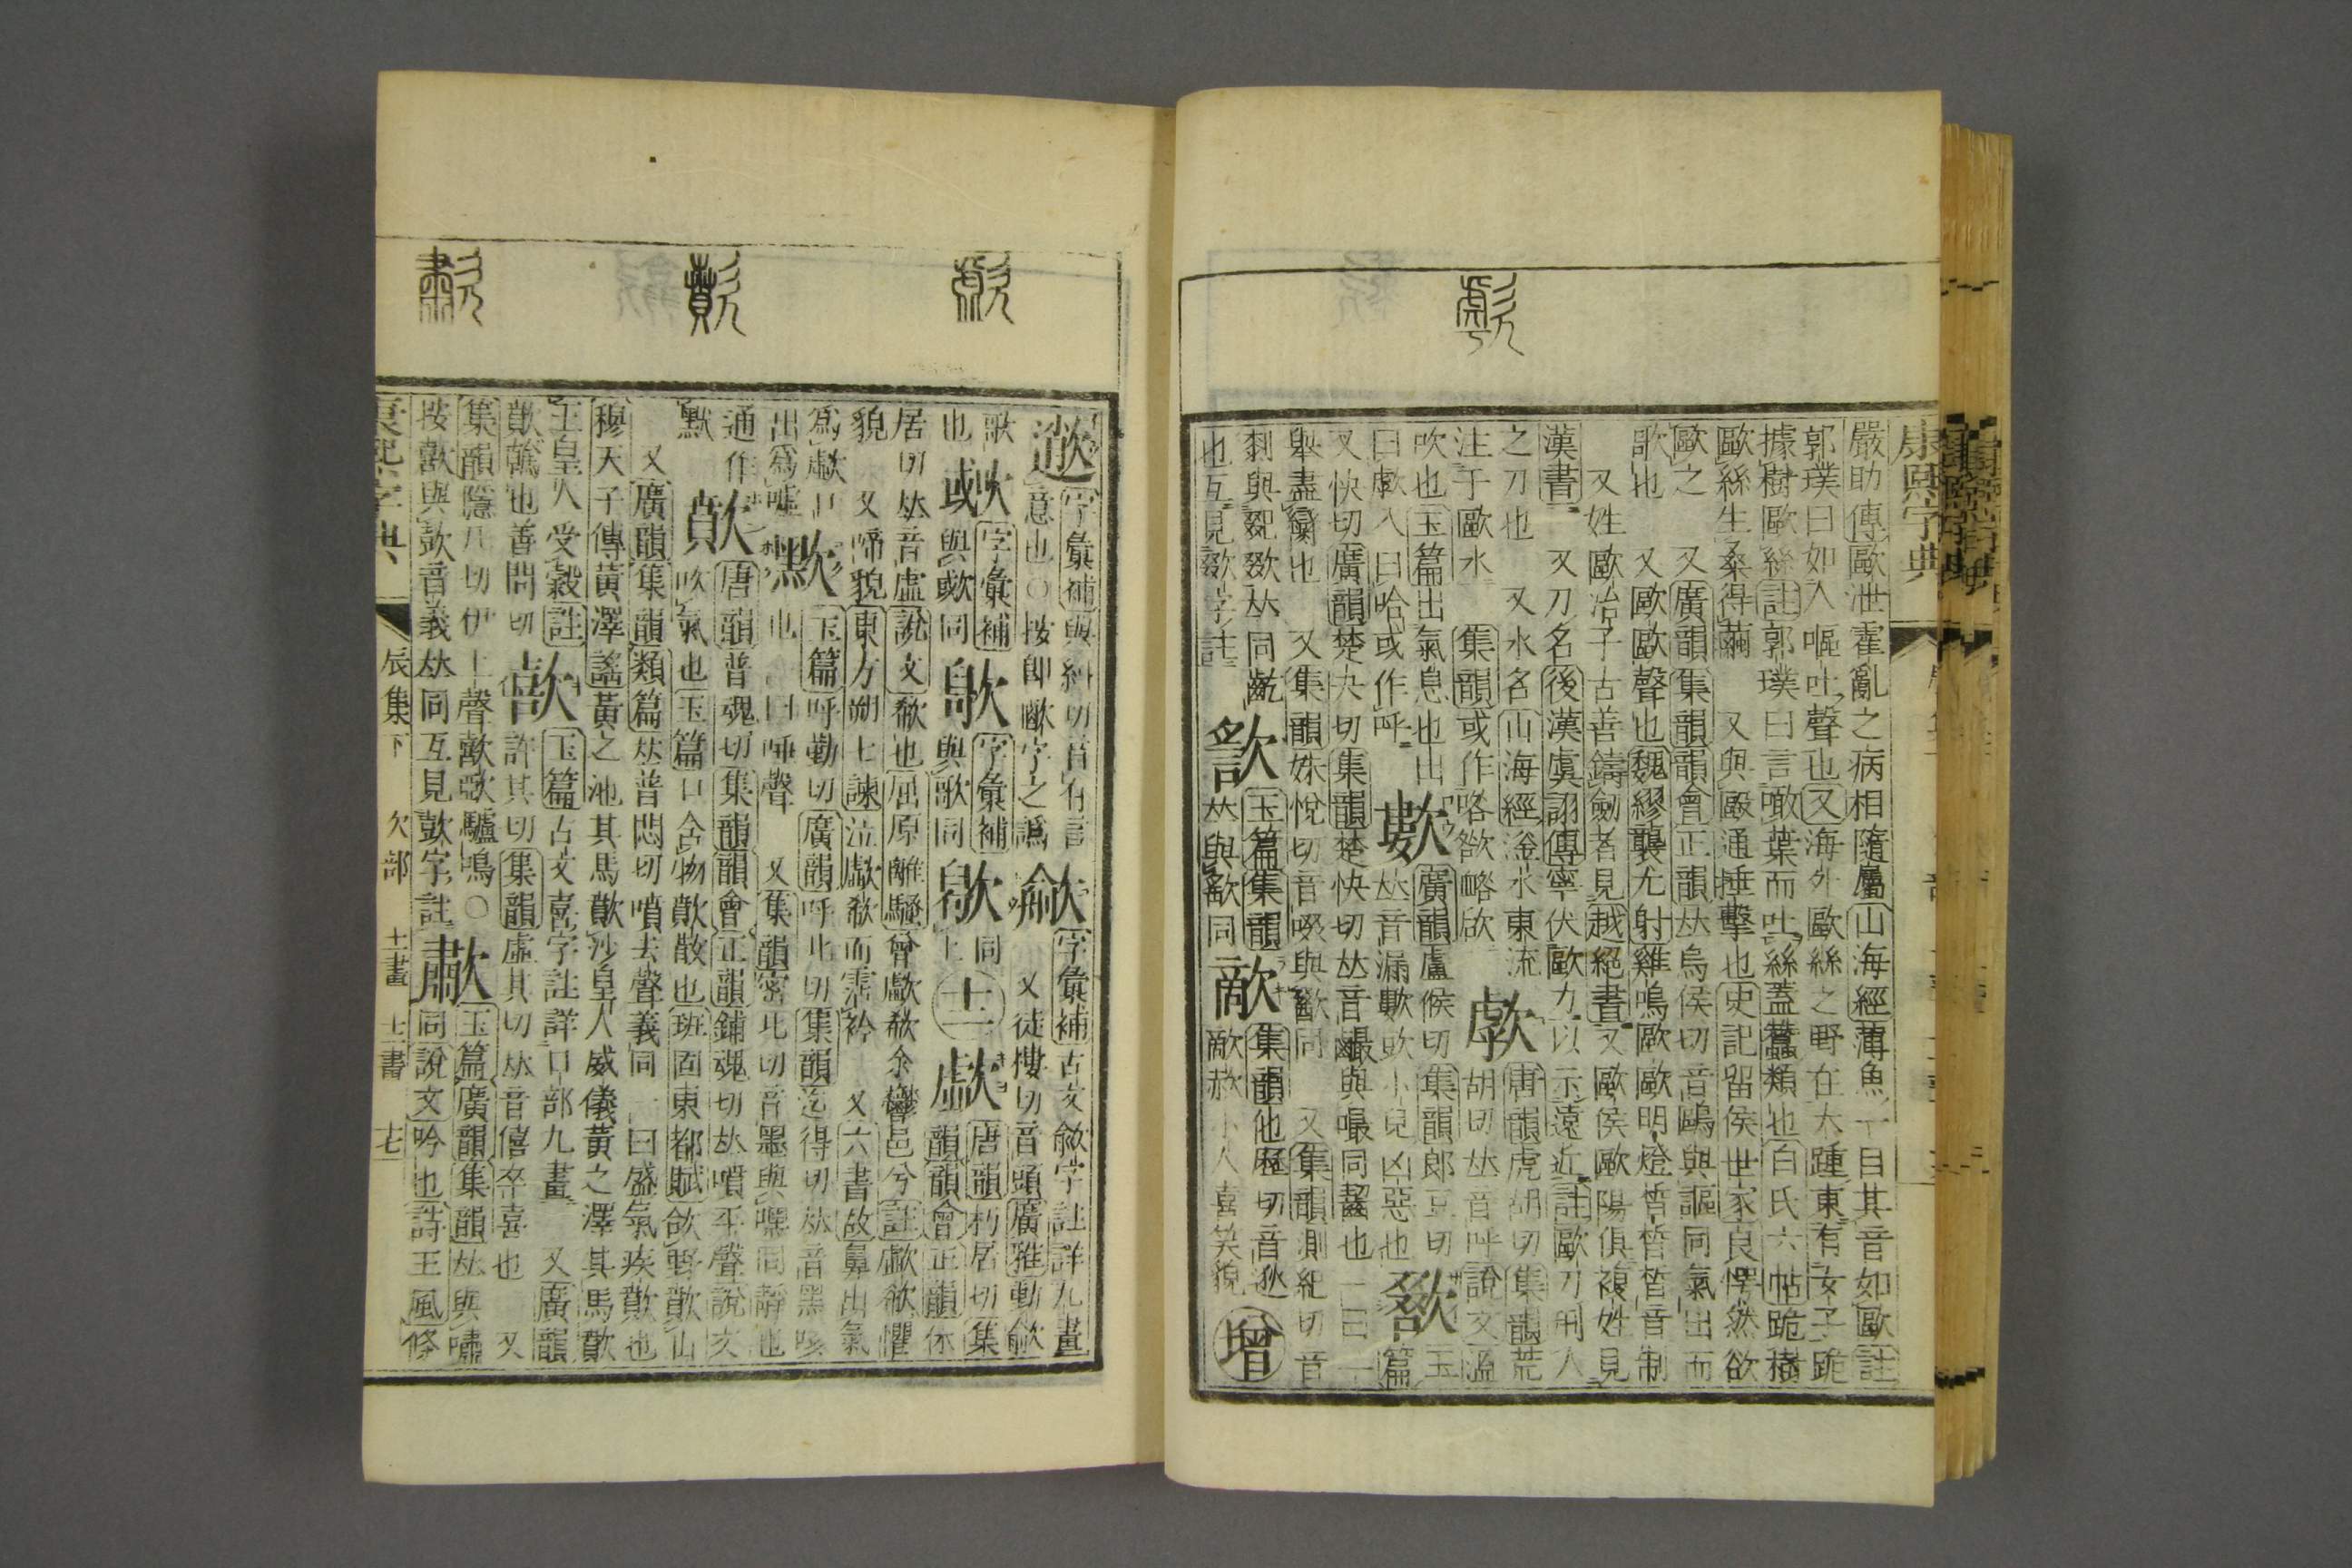 康熙字典
嚴助傳歐泄霍亂之病相隨屬山海經薄魚一目其音如歐註
郭璞曰如人嘔吐聲也又海外歐絲之野在大踵東有女子跪
據樹歐絲註郭璞曰言噉葉而吐絲蓋蠶類也白氏六帖跪樹
歐絲生桑得繭 又與毆通捶擊也史記留侯世家良愕然欲
歐之 又廣韻集韻韻會正韻𠀤烏侯切音鷗與謳同氣出而
歌也 又歐歐聲也魏繆襲尤射雞鳴歐歐明燈晢晢晢音制
又姓歐冶子古善鑄劒者見越絕書又歐侯歐陽俱複姓見
漢書 又刀名後漢虞詡傳寧伏歐刀以示遠近註歐刀刑人
之刀也 又水名山海經滏水東流 歑 唐韻虎胡切集韻荒
注于歐水 集韻或作 胡切𠀤音呼說文溫
吹也玉篇出氣息也出 廣韻盧候切集韻郎豆切 玉
曰歑入曰哈或作呼 𠀤音漏 小兒凶惡也 篇
又快切廣韻楚夬切集韻楚快切𠀤音嘬與嘬同齧也一曰一
舉盡臠也 又集韻姝悅切音啜與歠同 又集韻測紀切音
剗與 𠀤同 玉篇集韻 歒 集韻他歷切音逖 增
也互見 字註 𠀤與 同 歒 小人喜笑貌
字彙補與糾切音有言 歈 字彙補古文歈字註詳九畫
意也○按卽 字之譌 又徒摟切音頭廣雅動歈
歌 字彙補 字彙補 同 唐韻朽居切集
也 與歟同 與歌同 上 十二 歔 韻韻會正韻休
居切𠀤音虛說文欷也屈原離騷曾歔欷余鬱邑兮註歔欷懼
貌 又啼貌東方朔七諫泣歔欷而霑衿 又六書故鼻出氣
爲歔口 玉篇呼勒切廣韻呼北切集韻迄得切𠀤音黑咳
出爲噓 㱄 也一曰唾聲 又集韻密北切音墨與嘿同靜也
通作 歕 唐韻普魂切集韻韻會正韻鋪魂切𠀤噴平聲說文
默 吹氣也玉篇口含物歕散也班固東都賦欱野歕山
又廣韻集韻類篇𠀤普悶切噴去聲義同一曰盛氣疾歕也
穆天子傳黃澤謠黃之池其馬歕沙皇人威儀黃之澤其馬歕
玉皇人受穀註 歖 玉篇古文喜字註詳口部九畫 又廣韻
歕 也善問切 許其切集韻虛其切𠀤音僖卒喜也 又
集韻隱几切伊上聲歖歖驢鳴○ 歗 玉篇廣韻集韻𠀤與嘯
按歖與 音義𠀤同互見 字註 同說文吟也詩王風條
康熙字典 辰集下 欠部 十一畫 十二畫